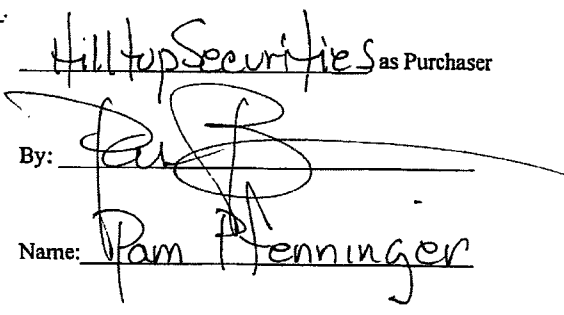 HilltopSecurities as Purchaser
By:
Name: Pam Pfenninger